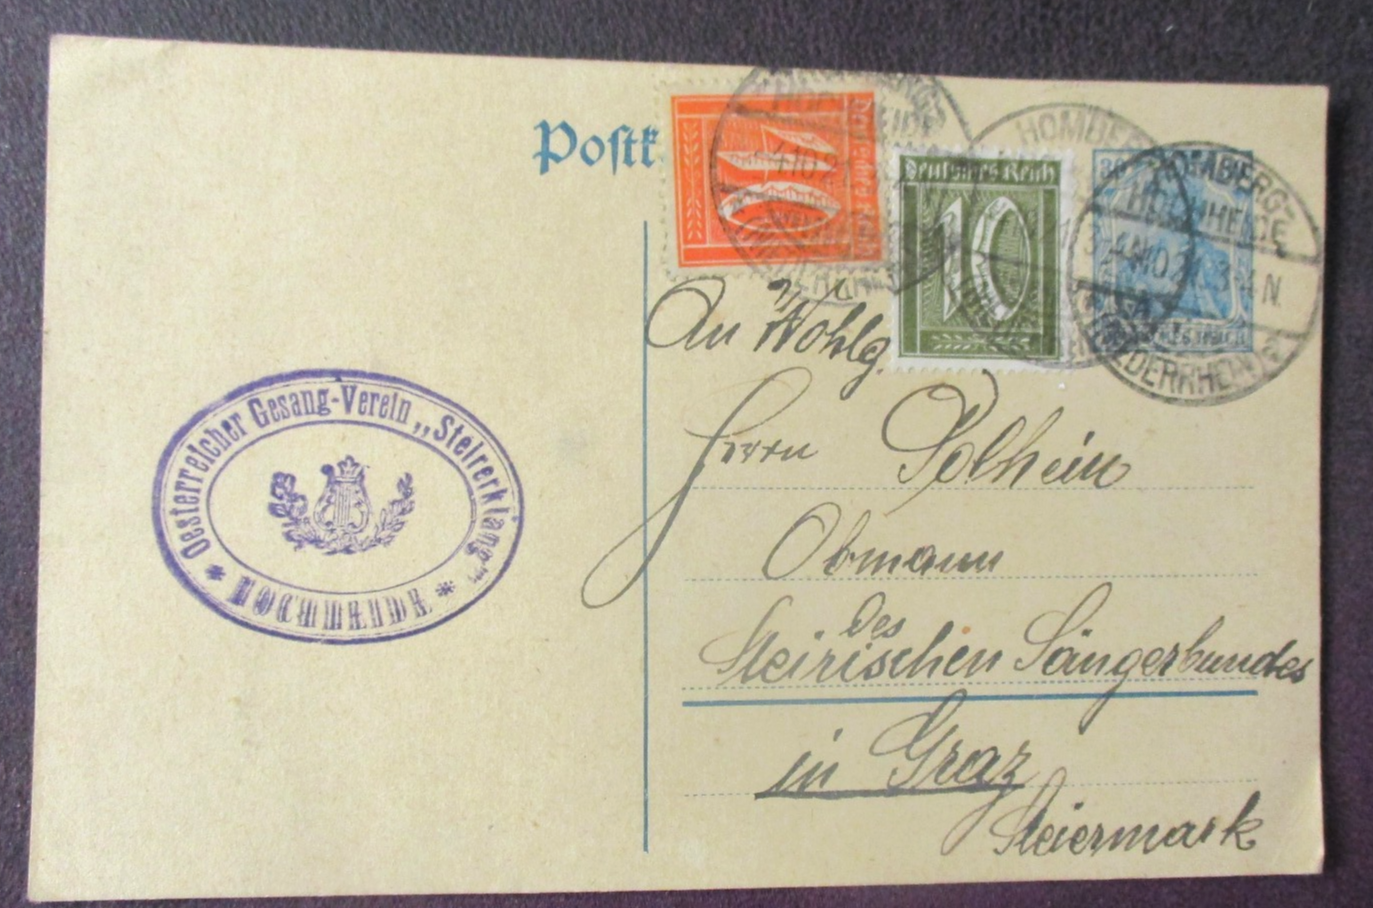 Postk
Deutsches Reich
Deutsches Reich
10
30
HOMBERG-
HOCHHEIDE
4.10.21. 3-4 N.
(NIEDERRHEIN)
An Wohlg.
Herrn Polhein
Obmann
des
Steirischen Sängerbundes
in Graz
Steiermark
Oesterreicher Gesang-Verein „Steirerklang"
* HOCHHEIDE *